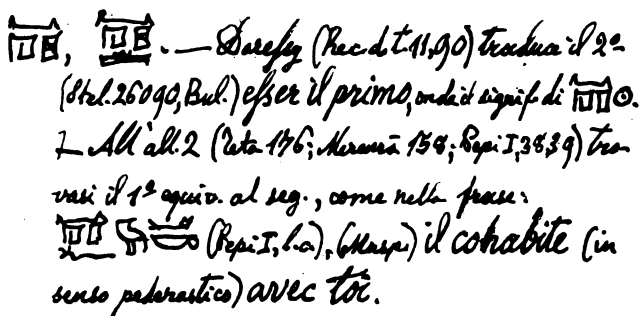 . — Daressy (Rec. d. t. 11,90) traduce il 2º
(Stel. 26090, Bul.) esser il primo, onde il signif. di
All'all. 2 (Teta 176; Merenrâ 158; Pepi I, 38,39) tro
vasi il 1º equiv. al seg., come nella frase:
(Pepi I, l. a), (Masp.) il cohabite (in
senso pederastico) avec toi.